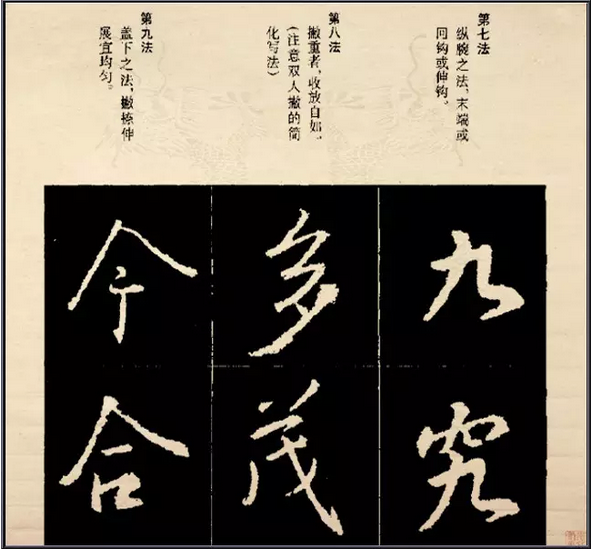 第七法
纵腕之法，末端或
回钩或伸钩。
第八法
撇重者，收放自如，
（注意双人撇的简
化写法）
第九法
盖下之法，撇捺伸
展宜均匀。
九
究
多
茂
今
合